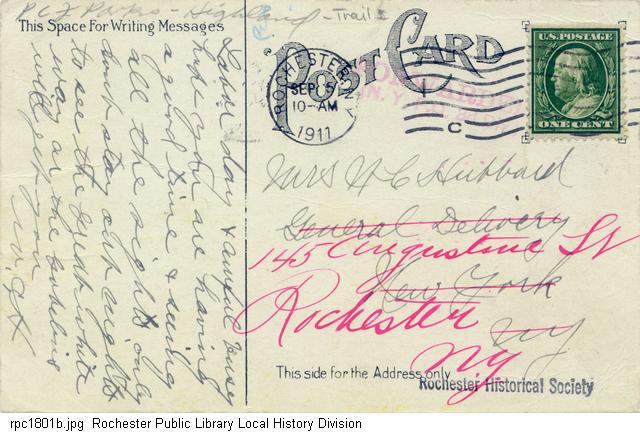 PCJ Parks - Highland - Trails
This Space For Writing Messages
POST CARD
ROCHESTER, N.Y.
SEP 5
10-AM
1911
C
U.S. POSTAGE
ONE CENT
Labor day & awful busy
hope you are having
a good time & seeing
all the sights only
dont stay out nights
to see the great white
way as the
will get you
Mrs H C Hubbard
General Delivery
New York
NY
145 Augustine St
Rochester
NY
This side for the Address only
Rochester Historical Society
rpc1801b.jpg Rochester Public Library Local History Division